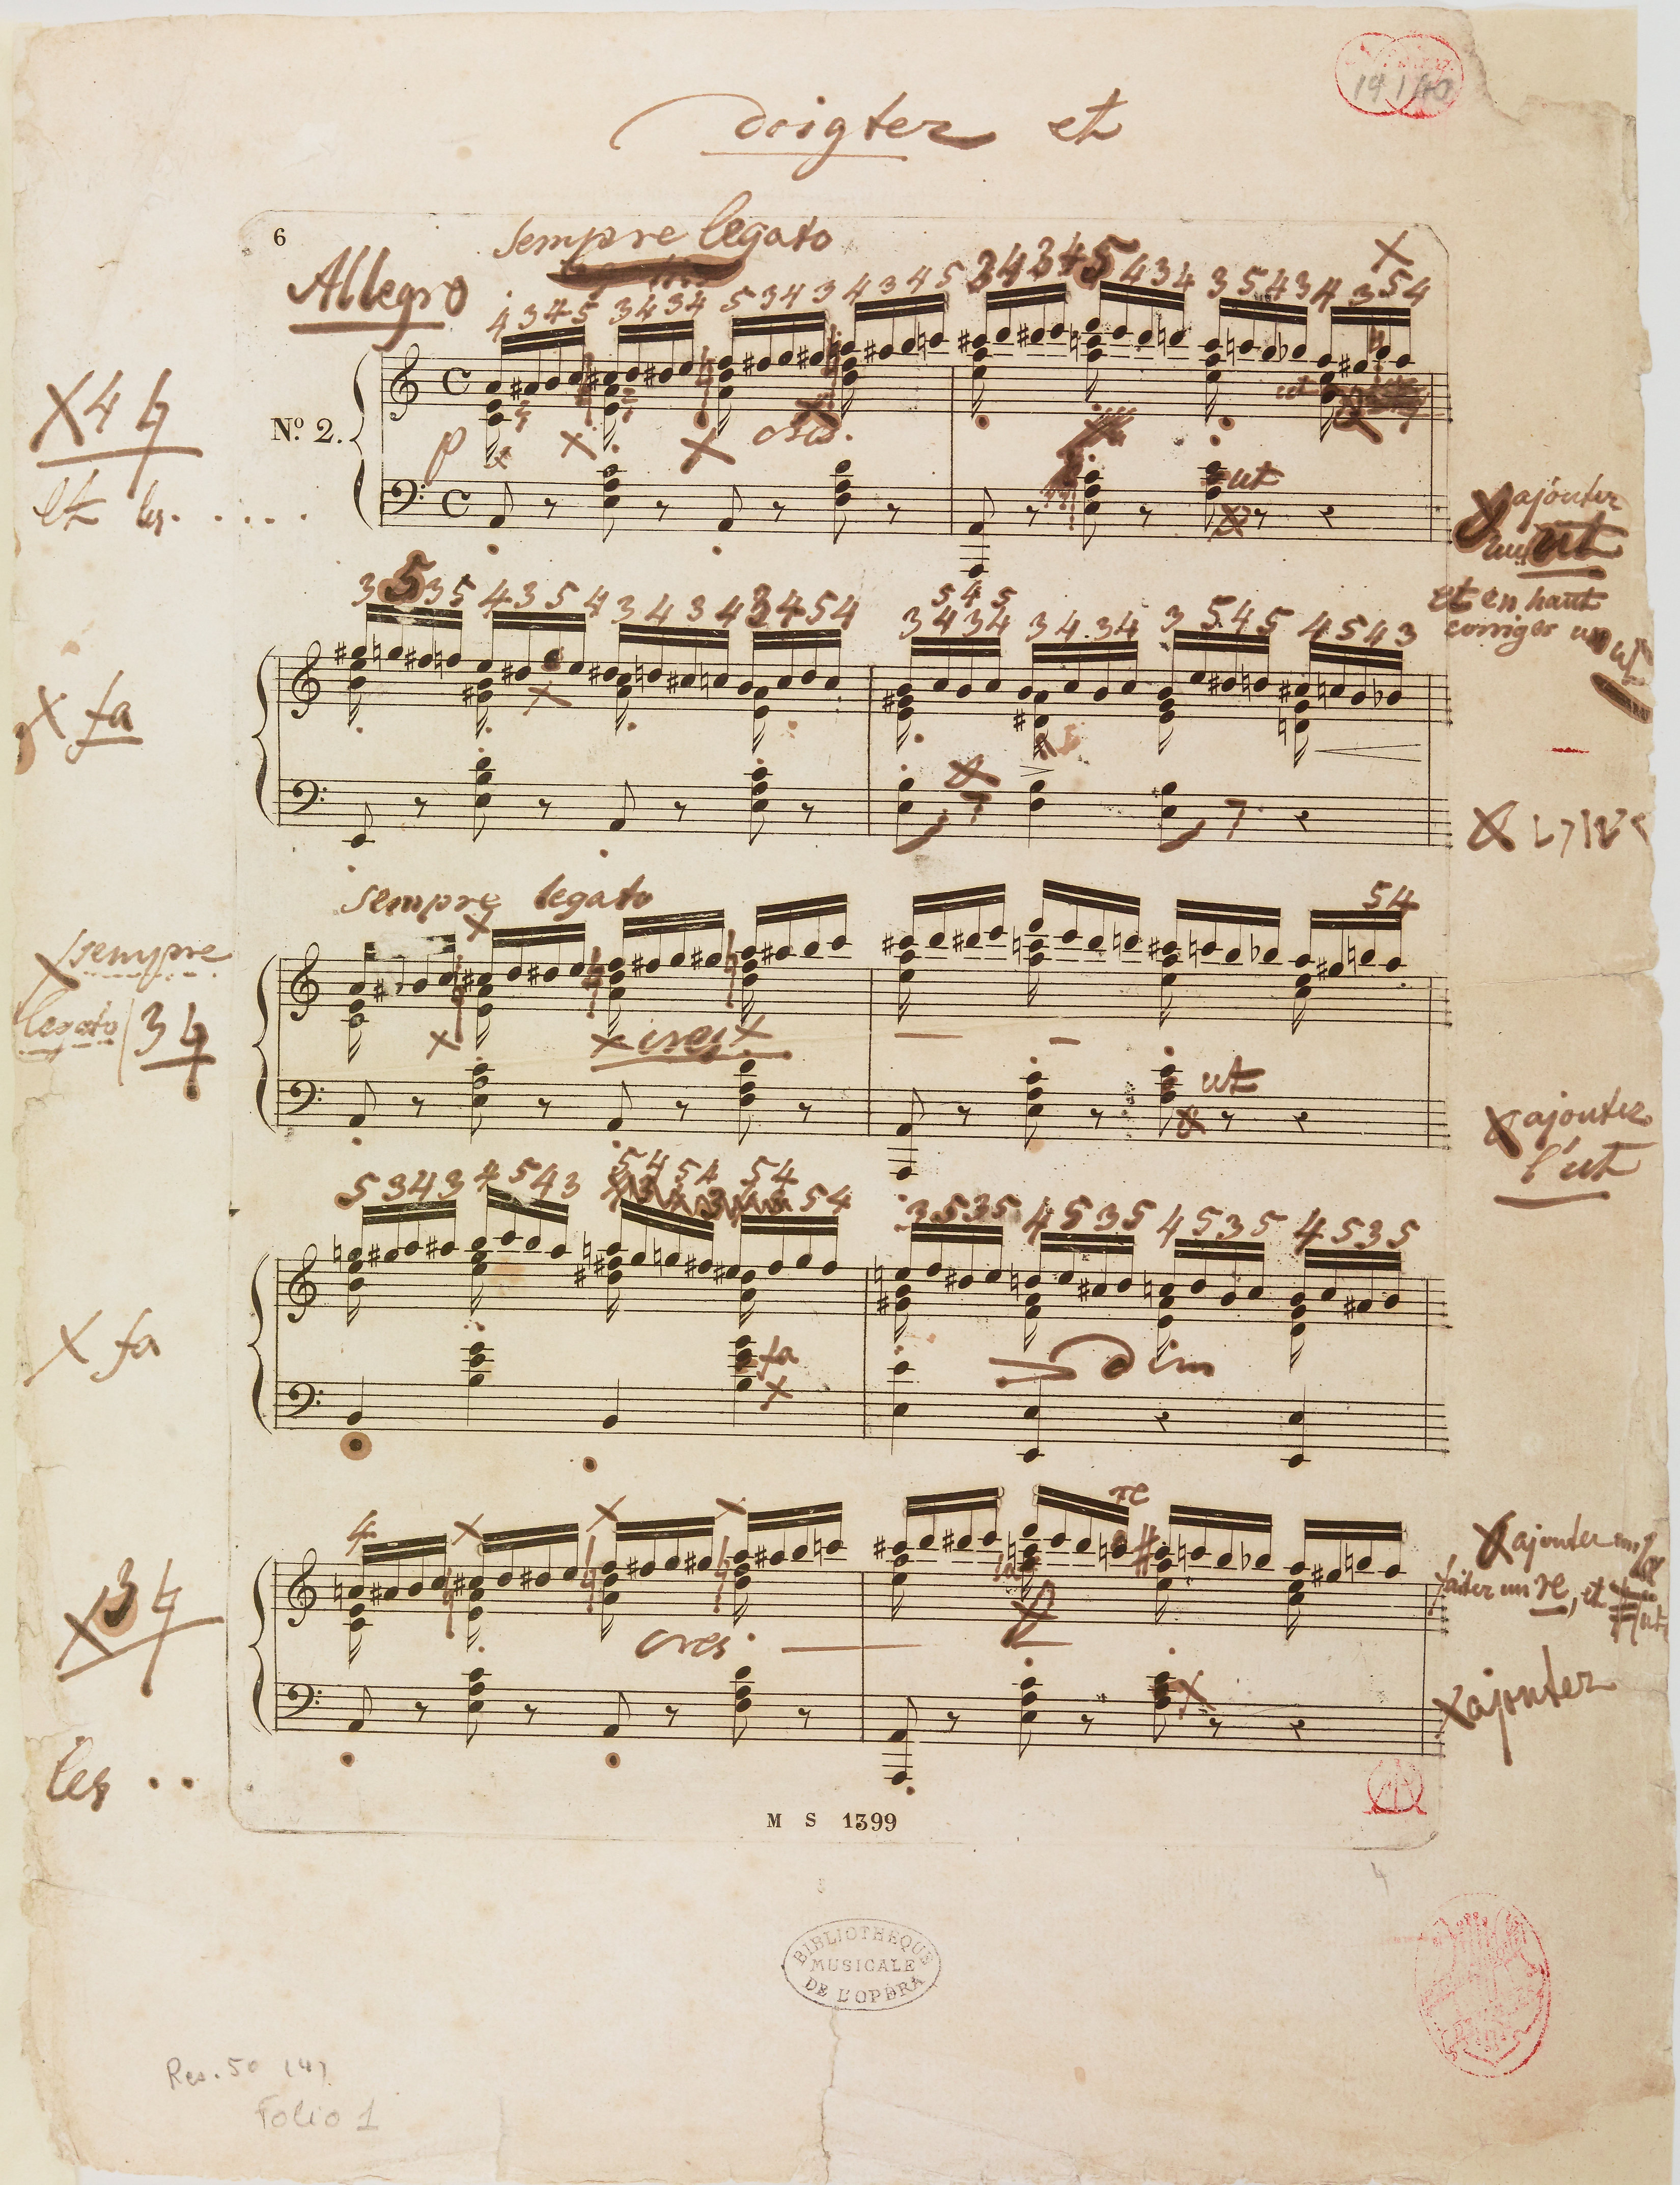 19.140
doigter et
6
sempre legato
Allegro
4 3 4 5 3 4 3 4 5 3 4 3 4 3 4 5 3 4 3 4 5 4 3 4 3 5 4 3 4 3 5 4
X
X 4 ♮
No. 2.
p
cres.
et les . . . . .
ut
X ajouter
un ut
et en haut
corriger un
3 5 3 5 4 3 5 4 3 4 3 4 3 4 5 4
5 4 5
3 4 3 4 3 4 3 4 3 5 4 5 4 5 4 3
X fa
X
sempre legato
5 4
X sempre
legato / 3 ♮
X cres. X
ut
X ajouter
l'ut
5 3 4 3 4 5 4 3 5 4 5 4 5 4 5 4
3 5 3 5 4 5 3 5 4 5 3 5 4 5 3 5
X fa
fa
dim
4
re
X ajouter un la
un re, et # ut
la
X 3 ♮
cres.
X ajouter
les . .
M S 1399
BIBLIOTHEQUE
MUSICALE
DE L'OPÉRA
Res. 50 (4)
Folio 1